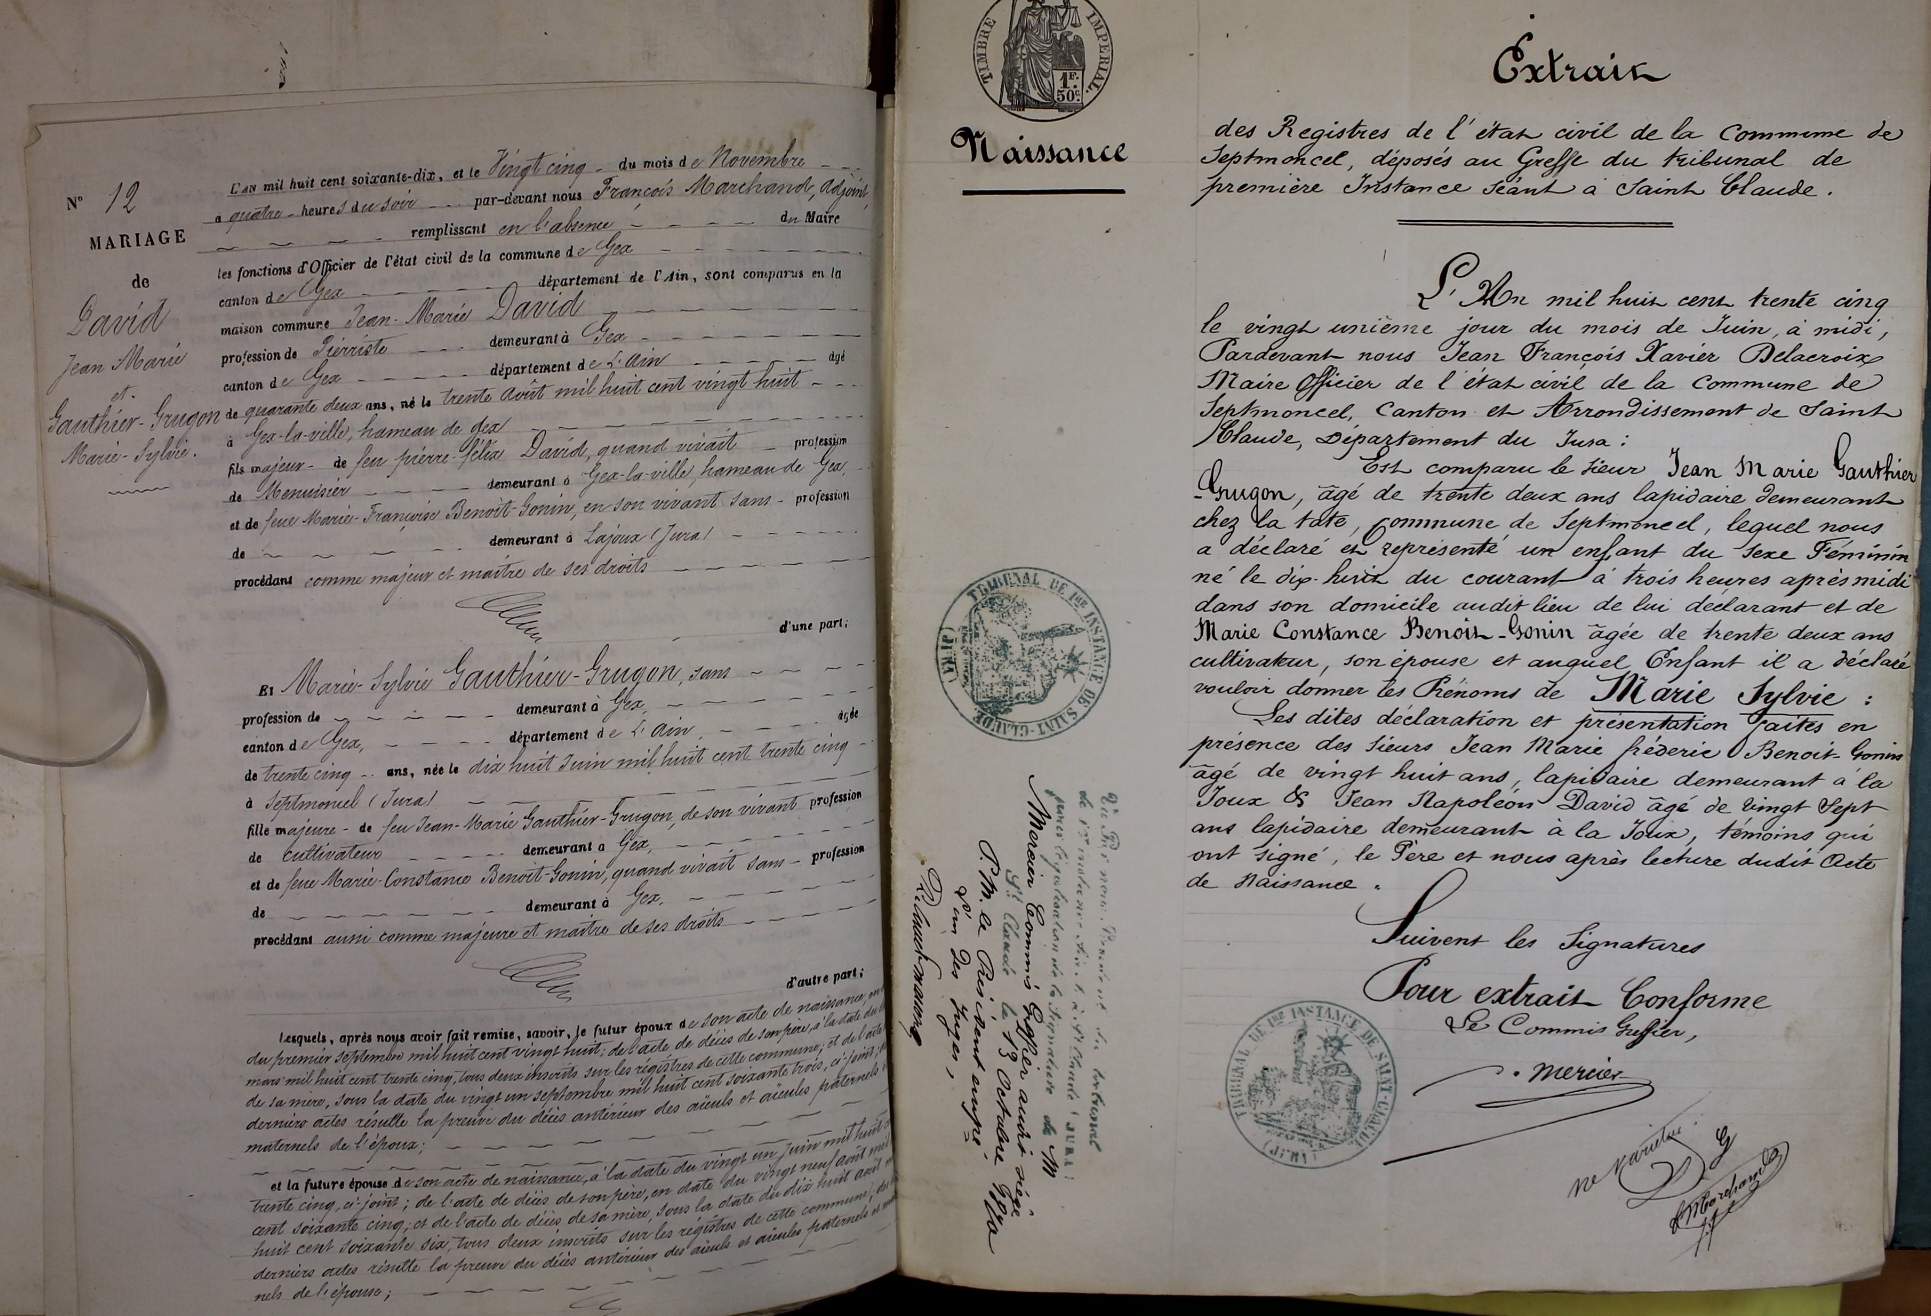 N° 12
MARIAGE
de
David
Jean Marie
et
Gauthier-Grugon
Marie-Sylvie.
L'an mil huit cent soixante-dix, et le Vingt cinq du mois de Novembre
a quatre heures du soir par-devant nous François Marchand, adjoint,
remplissant en l'absence du Maire
les fonctions d'Officier de l'état civil de la commune de Gex
canton de Gex département de l'Ain, sont comparus en la
maison commune Jean-Marie David
profession de Pierriste demeurant à Gex
canton de Gex département de L'Ain âgé
de quarante deux ans, né le trente Août mil huit cent vingt huit
à Gex-la-ville, hameau de Gex
fils majeur de feu pierre-félix David, quand vivait profession
de Menuisier demeurant à Gex-la-ville, hameau de Gex,
et de feue Marie-Françoise Benoit-Gonin, en son vivant sans profession
de demeurant à Lajoux (Jura)
procédant comme majeur et maître de ses droits
d'une part;
Et Marie-Sylvie Gauthier-Grugon, sans
profession de demeurant à Gex,
canton de Gex, département de L'Ain, âgée
de trente cinq ans, née le dix huit Juin mil huit cent trente cinq
à Septmoncel (Jura)
fille majeure de feu Jean-Marie Gauthier-Grugon, de son vivant profession
de cultivateur demeurant à Gex,
et de feue Marie-Constance Benoit-Gonin, quand vivait sans profession
de demeurant à Gex.
procédant aussi comme majeure et maître de ses droits
d'autre part;
Lesquels, après nous avoir fait remise, savoir, le futur époux de son acte de naissance,
du premier septembre mil huit cent vingt huit; de l'acte de décès de son père, à la date du
mars mil huit cent trente cinq, tous deux inscrits sur les régistres de cette commune; et de l'acte
de sa mère, sous la date du vingt un septembre mil huit cent soixante trois, ci-joint;
derniers actes résulte la preuve du décès antérieur des aïeuls et aïeules paternels
maternels de l'époux;
et la future épouse de son acte de naissance, à la date du vingt un juin mil huit
trente cinq, ci-joint; de l'acte de décès de son père, en date du vingt neuf août mil
cent soixante cinq, et de l'acte de décès de sa mère, sous la date du dix huit avril
huit cent soixante six, tous deux inscrits sur les régistres de cette commune,
derniers actes résulte la preuve du décès antérieur des aïeuls et aïeules paternels et
nels de l'épouse;
TIMBRE IMPERIAL
1F.
50c.
Naissance
TRIBUNAL DE 1ERE INSTANCE DE SAINT-CLAUDE
(JURA)
Vu Par nous, Président du tribunal
de 1ere instance séant à St Claude (JURA)
pour légalisation de la signature de M
Mercier Commis Greffier audit siège
St Claude le 13 Octobre 1870
P M. le Président empé
L'un des Juges,
Extrait
des Registres de l'état civil de la Commune de
Septmoncel, déposés au Greffe du tribunal de
première Instance séant à Saint Claude.
L'An mil huit cent trente cinq
le vingt unième jour du mois de Juin, à midi,
Pardevant nous Jean François Xavier Delacroix
Maire Officier de l'état civil de la Commune de
Septmoncel, Canton et Arrondissement de Saint
Claude, Département du Jura:
Est comparu le sieur Jean Marie Gauthier
-Grugon, âgé de trente deux ans lapidaire demeurant
chez la tate, Commune de Septmoncel, lequel nous
a déclaré et représenté un enfant du sexe Féminin
né le dix-huit du courant à trois heures après midi
dans son domicile audit lieu de lui déclarant et de
Marie Constance Benoit-Gonin âgée de trente deux ans
cultivateur, son épouse et auquel Enfant il a déclaré
vouloir donner les Prénoms de Marie Sylvie:
Les dites déclaration et présentation faites en
présence des sieurs Jean Marie fréderic Benoit-Gonin
âgé de vingt huit ans, lapidaire demeurant à la
Joux & Jean Napoléon David âgé de vingt sept
ans lapidaire demeurant à la Joux, témoins qui
ont signé, le Père et nous après lecture dudit Acte
de Naissance.
Suivent les Signatures
Pour extrait Conforme
Le Commis Greffier,
Mercier
TRIBUNAL DE 1ERE INSTANCE DE SAINT-CLAUDE
(JURA)
ne varietur
F Marchand